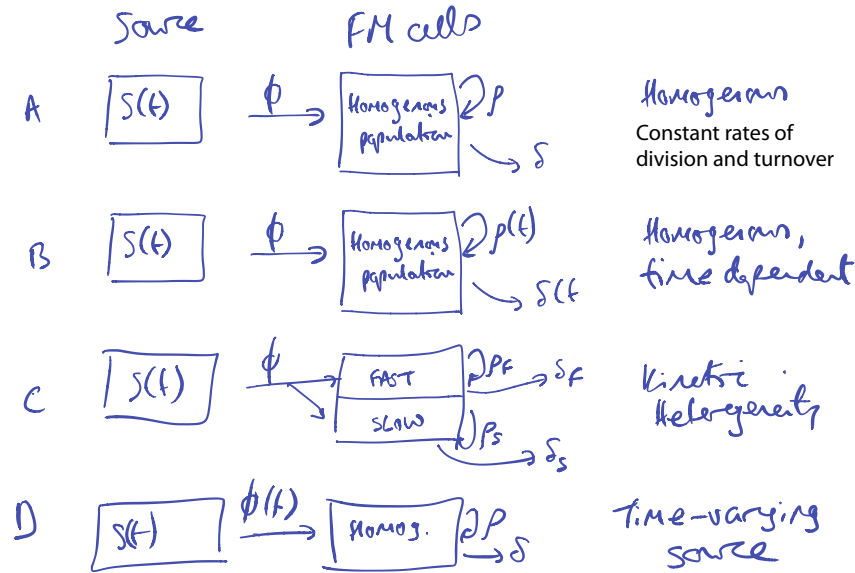 Source FM cells
A S(t) ϕ Homogenous population ρ δ Homogenous
Constant rates of
division and turnover
B S(t) ϕ Homogenous population ρ(t) δ(t Homogenous,
time dependent
C S(t) ϕ FAST ρF δF Kinetic
SLOW ρS δS Heterogeneity
D S(t) ϕ(t) Homog. ρ δ Time-varying
source